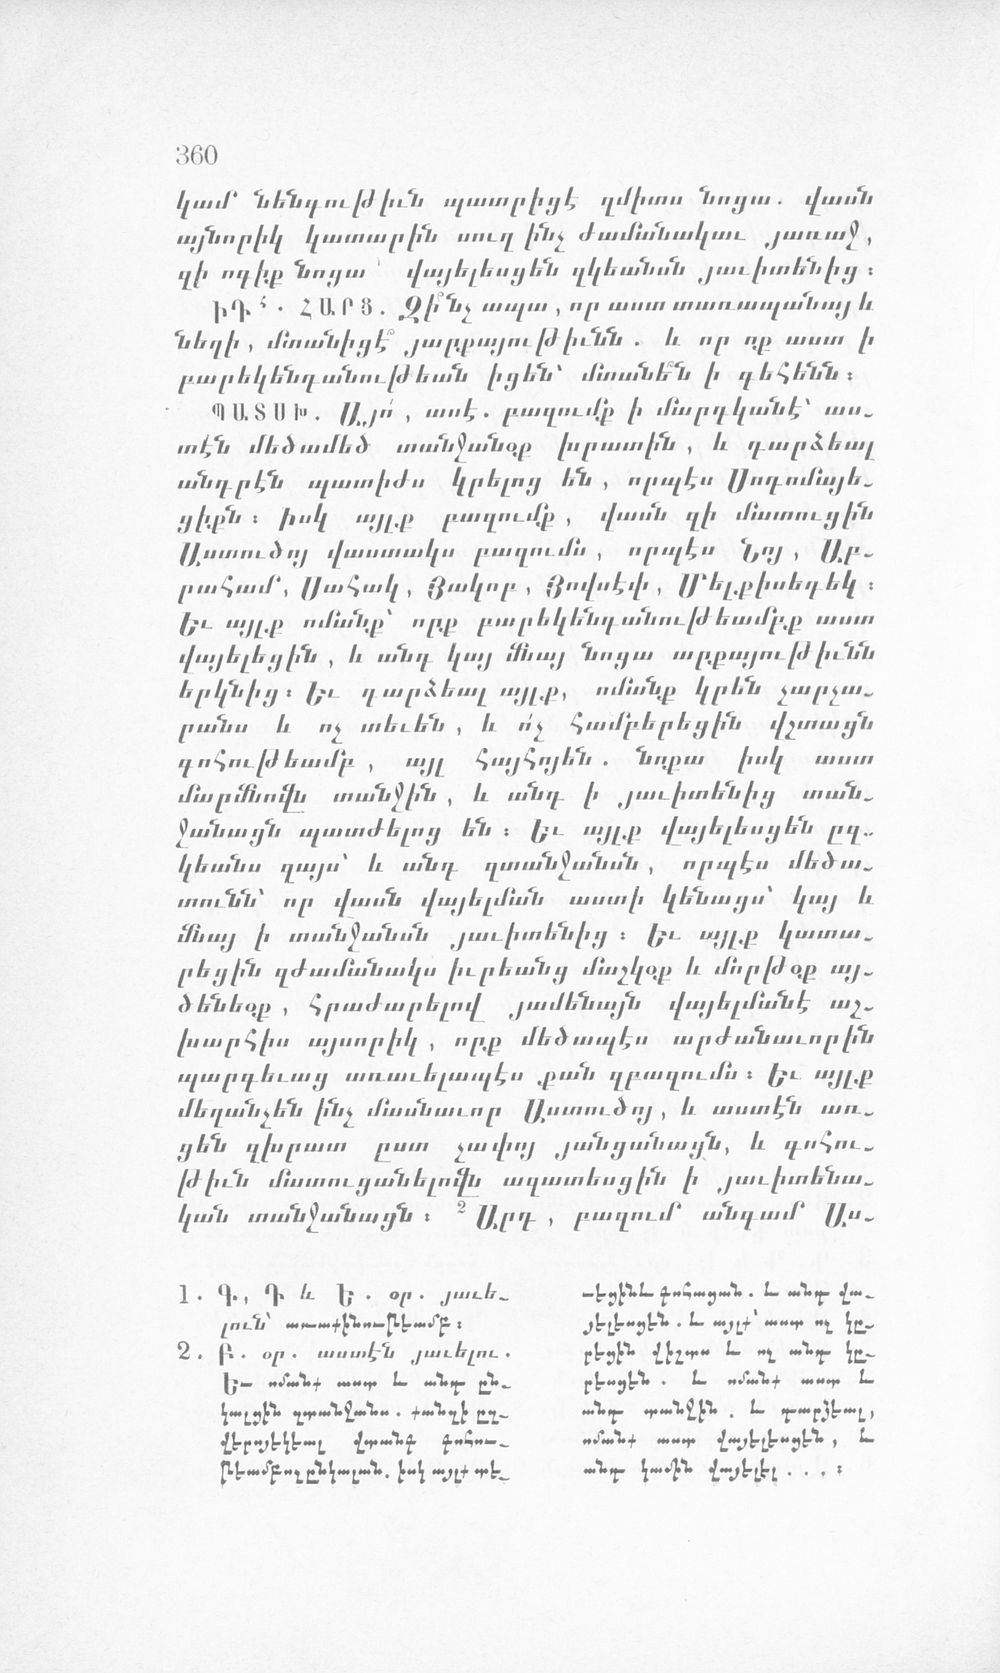 360
կամ նենգութիւն պատրիցէ զմիտս նոցա. վասն
այնորիկ կատարին սուղ ինչ ժամանակաւ յառաջ,
զի ոգիք նոցա ՝ վայելեսցեն զկեանսն յաւիտենից:
ԻԴ ՀԱՐՑ. Զի՞նչ ապա, որ աստ տառապանայ և
նեղի, մտանիցէ՞ յարքայութիւնն. և որ ոք աստ ի
բարեկենդանութեան իցեն՝ մտանե՞ն ի գեհենն:
ՊԱՏԱԽ. Այո՛, ասէ. բազումք ի մարդկանէ՝ աս-
տէն մեծամեծ տանջանօք խրատին, և դարձեալ
անդրէն պատիժս կրելոց են, որպէս Սոդոմայե-
ցիքն: իսկ այլք բազումք, վասն զի մատուցին
Աստուծոյ վաստակս բազումս, որպէս Նոյ, Աբ-
րահամ, Սահակ, Յակոբ, Յովսէփ, Մելքիսեդեկ:
Եւ այլք ոմանք՝ որք բարեկենդանութեամբք աստ
վայելեցին, և անդ կայ մնայ նոցա արքայութիւնն
երկնից: Եւ դարձեալ այլք, ոմանք կրեն չարչա-
րանս և ոչ տեւեն, և ո՛չ համբերեցին վշտացն
գոհութեամբ, այլ հայհոյեն. նոքա իսկ աստ
մարմնովն տանջին, և անդ ի յաւիտենից տան-
ջանացն պատժելոց են: Եւ այլք վայելեսցեն ըզ-
կեանս զայս՝ և անդ զտանջանսն, որպէս մեծա-
տունն՝ որ վասն վայելման աստի կենացս՝ կայ և
մնայ ի տանջանսն յաւիտենից: Եւ այլք կատա-
րեցին զժամանակս իւրեանց մաշկօք և մորթօք այ-
ծենեօք, հրաժարելով յամենայն վայելմանէ աշ-
խարհիս այսորիկ, որք մեծապէս արժանաւորին
պարգեւաց առաւելապէս քան զբազումս: Եւ այլք
մեղանչեն ինչ մասնաւոր Աստուծոյ, և աստէն առ-
ցեն զխրատ ըստ չափոյ յանցանացն, և գոհու-
թիւն մատուցանելովն ազատեսցին ի յաւիտենա-
կան տանջանացն: ² Արդ, բազում անգամ Աս-
1. Գ, Դ և Ե. օր. յաւե-
լուն՝ առաքինութեամբ:
2. Բ. օր. աստէն յաւելու.
Եւ ոմանք աստ և անդ ըն-
կալցին զտանջանս. քանզի ըզ-
վերոյեկեալ վտանգ գոհու-
թեամբ ոչ ընկալան. իսկ այլք տե-
ւեցին և գոհացան. և անդ վա-
յելեսցեն. և այլք՝ աստ ոչ կը-
րեցին վիշտս և ոչ անդ կը-
րեսցեն. և ոմանք աստ և
անդ տանջին. և դարձեալ,
ոմանք աստ վայելեսցեն, և
անդ կամին վայելել....: